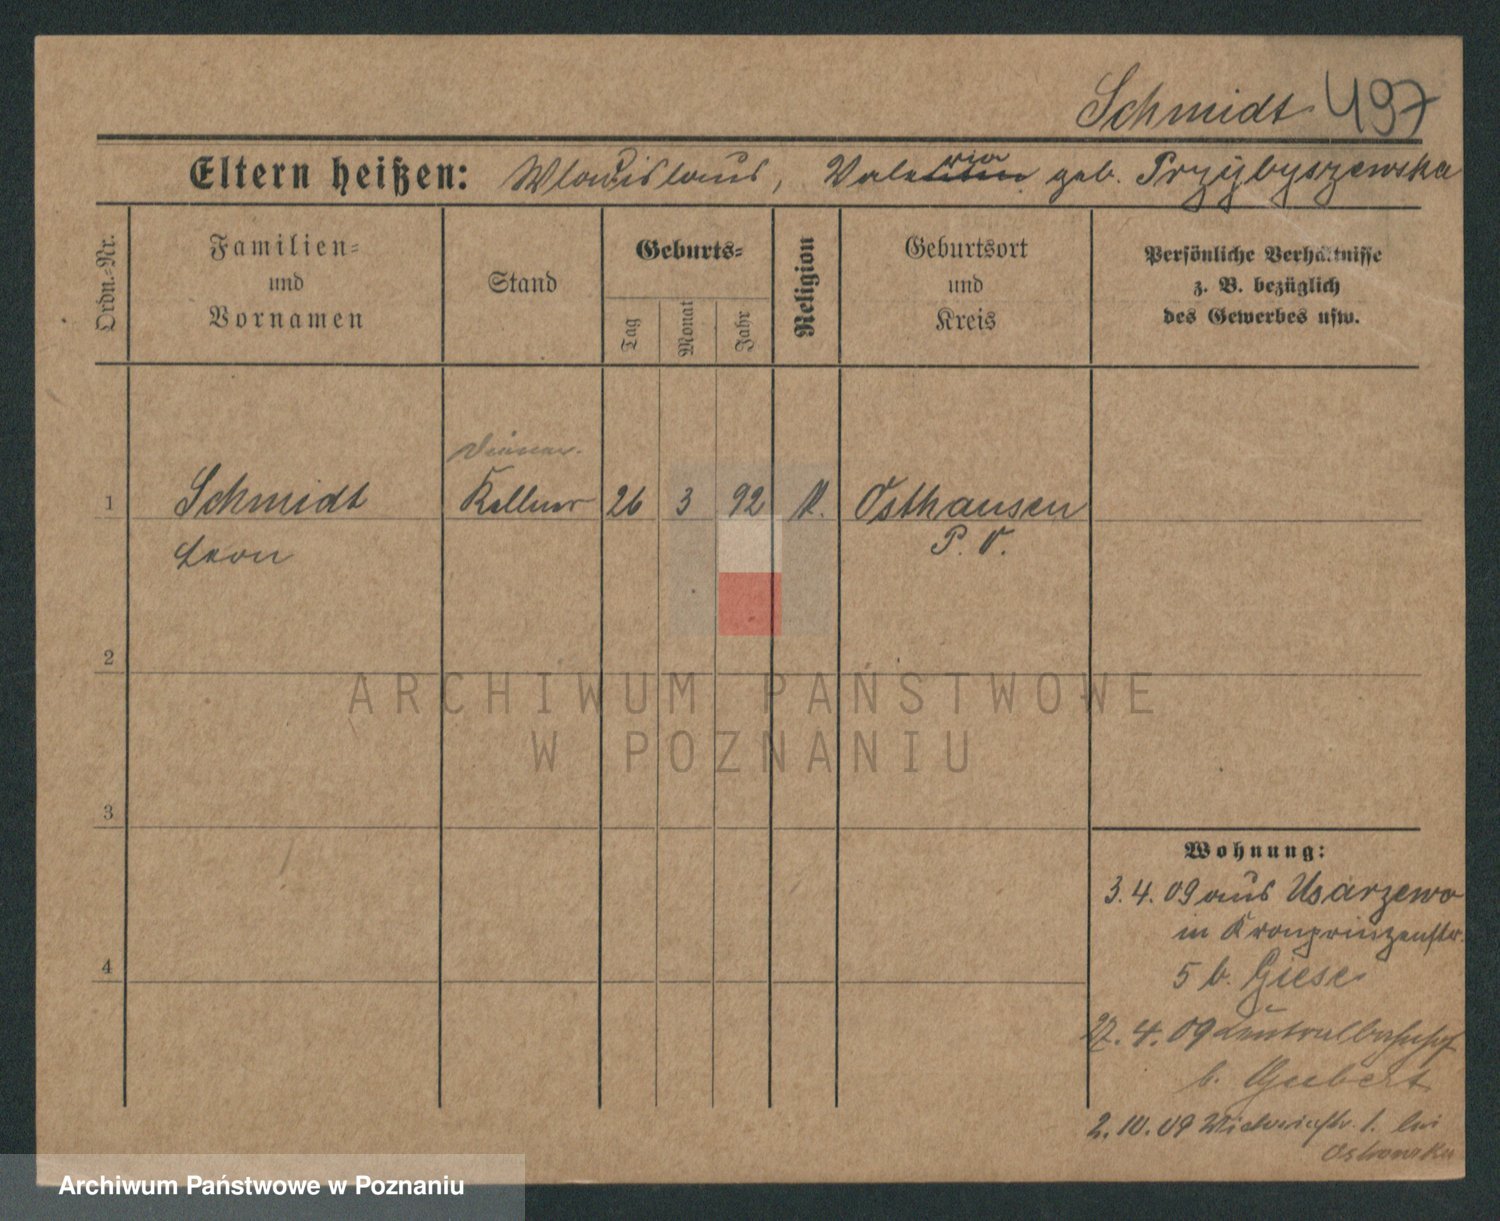 Schmidt 497
Eltern heißen: Wladislaus, Valeria geb. Przybyszewska
Ordn.-Nr.
Familien-
und
Vornamen
Stand
Geburts-
Tag
Monat
Jahr
Religion
Geburtsort
und
Kreis
Persönliche Verhältnisse
z. B. bezüglich
des Gewerbes usw.
Diener
1 Schmidt Kellner 26 3 92 K. Osthausen
Leon P. O.
2
ARCHIWUM PAŃSTWOWE
W POZNANIU
3
Wohnung:
3. 4. 09 aus Usarzewo
in Kronprinzenstr.
4
5 b. Giese
27. 4. 09 Centralbahnhof
b. Gubert
2. 10. 09 1. bei
Ostrowska
Archiwum Państwowe w Poznaniu